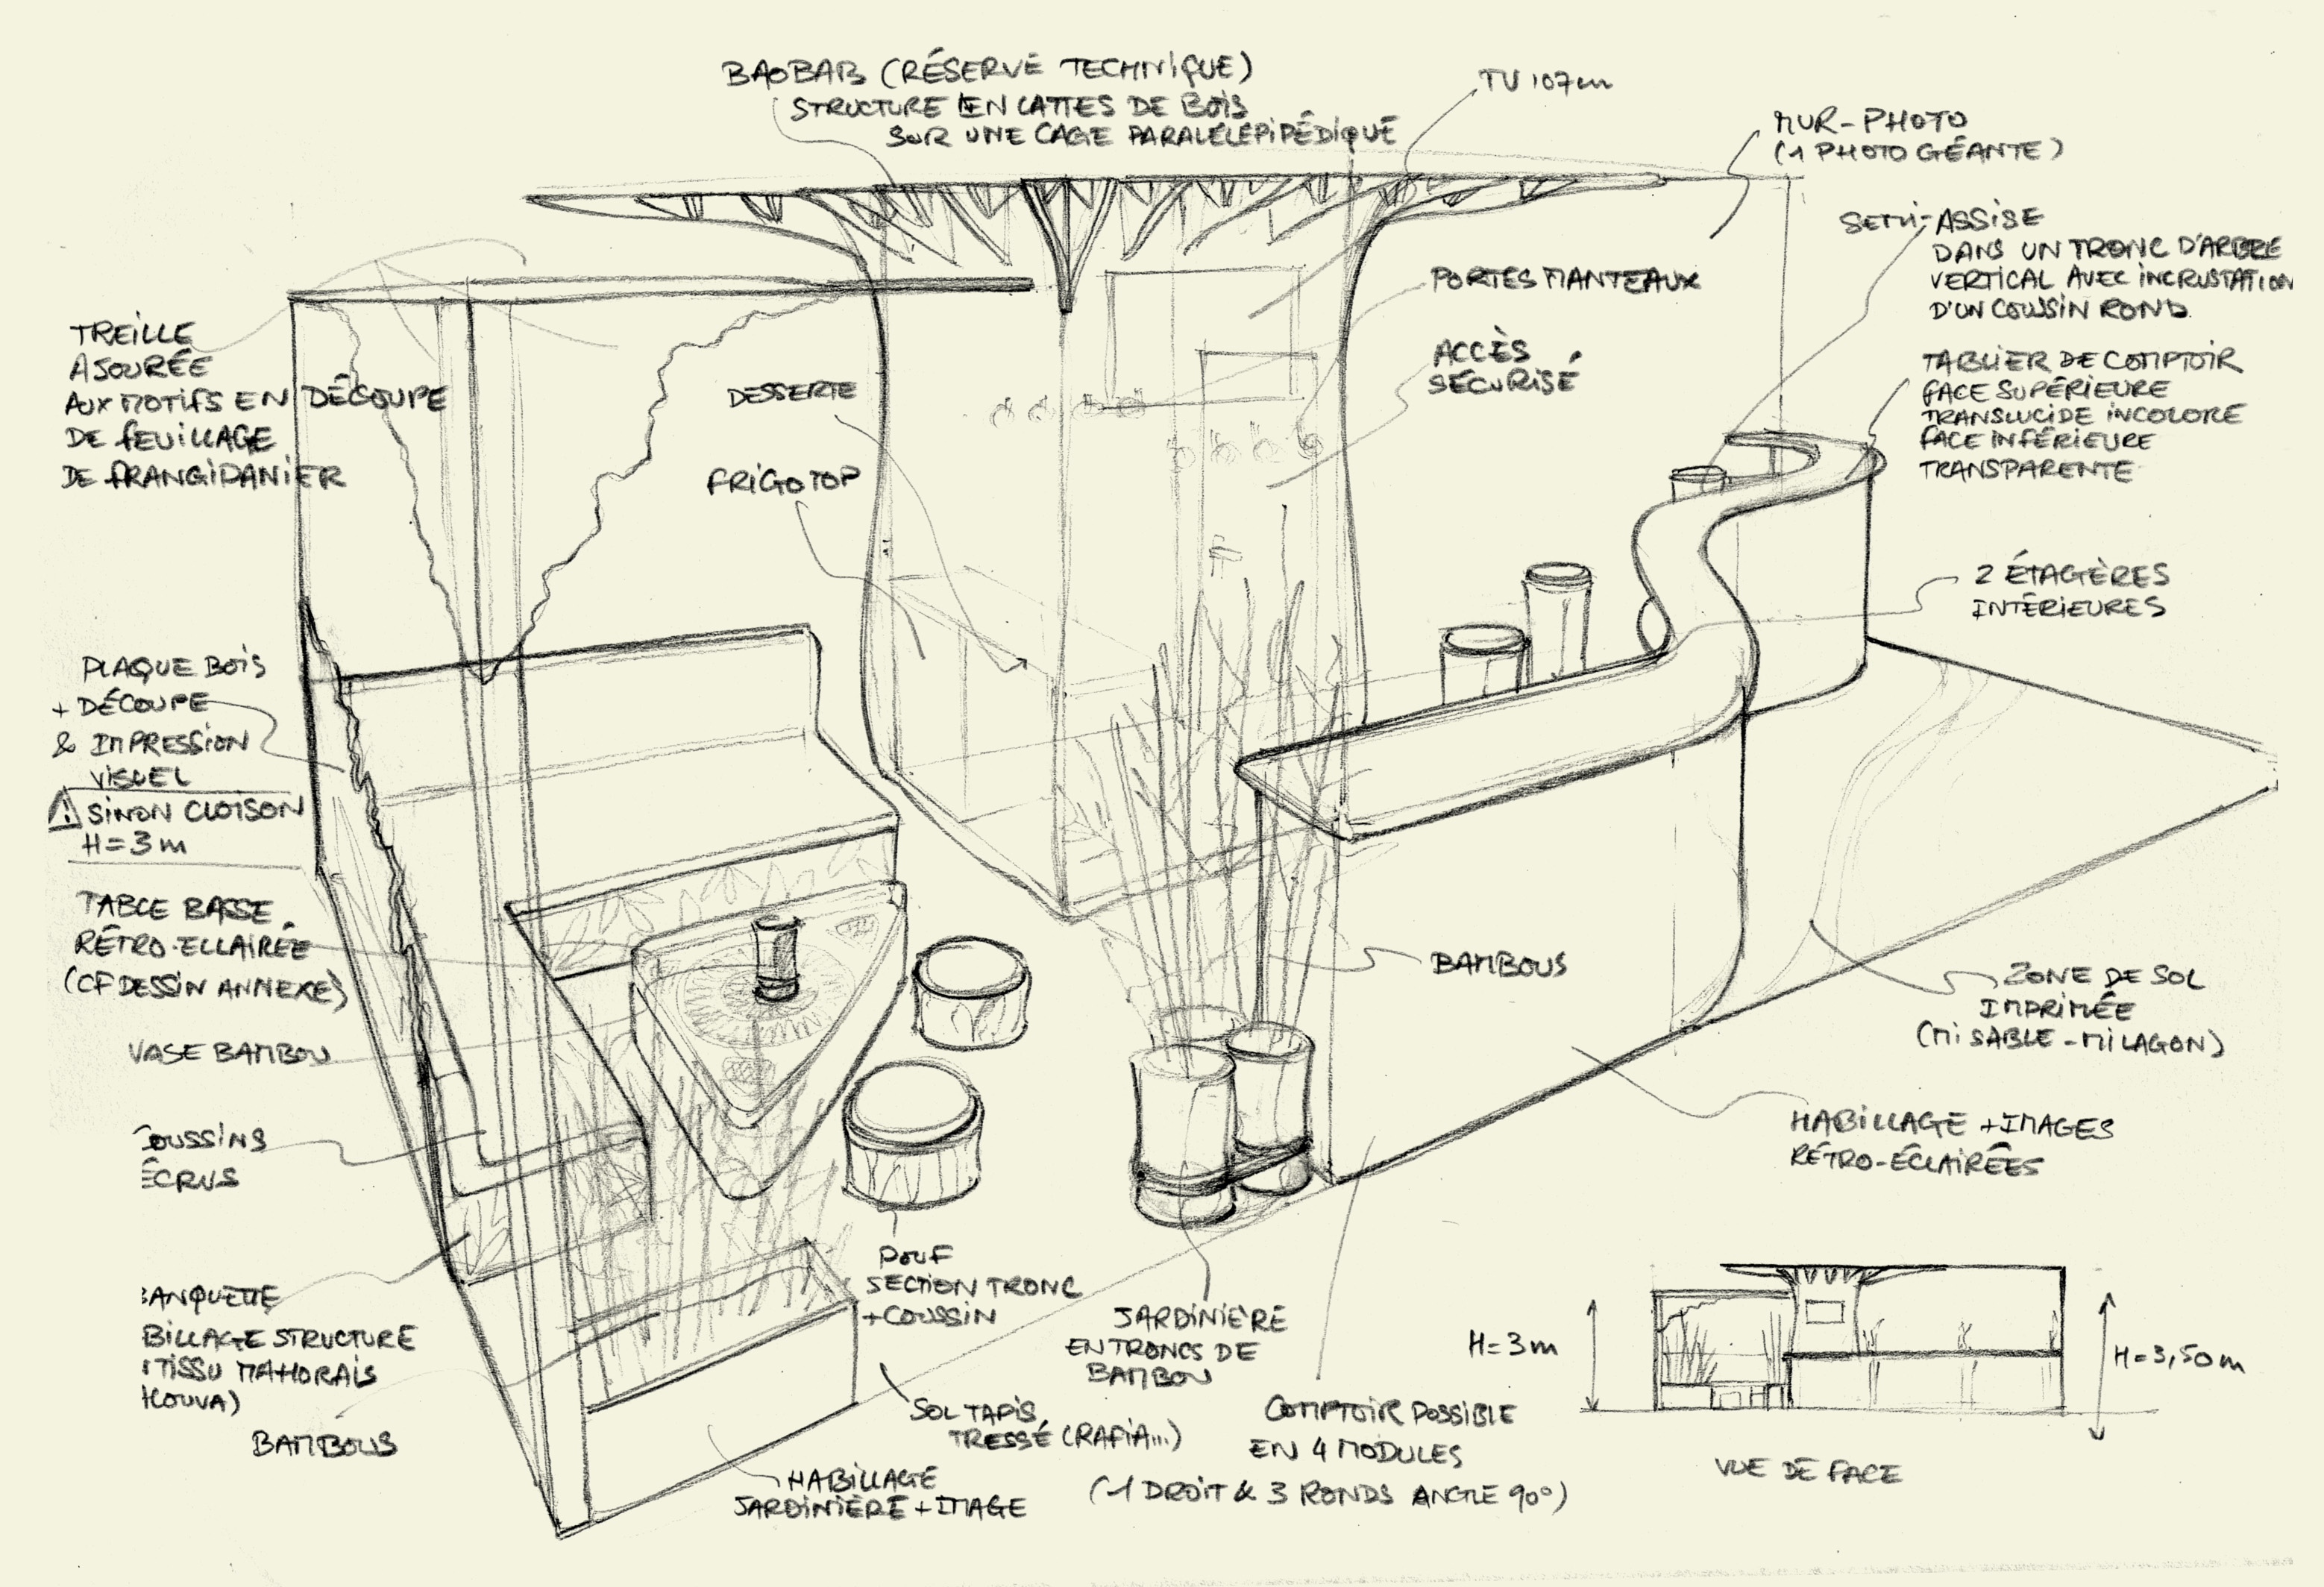 BAOBAB (RÉSERVE TECHNIQUE)
STRUCTURE EN LATTES DE BOIS
SUR UNE CAGE PARALELEPIPÉDIQUE
TV 107cm
MUR-PHOTO
(1 PHOTO GÉANTE)
SEMI-ASSISE
DANS UN TRONC D'ARBRE
VERTICAL AVEC INCRUSTATION
D'UN COUSSIN ROND
PORTES MANTEAUX
ACCÈS
SÉCURISÉ
TABLIER DE COMPTOIR
FACE SUPÉRIEURE
TRANSLUCIDE INCOLORE
FACE INFÉRIEURE
TRANSPARENTE
TREILLE
AJOURÉE
AUX MOTIFS EN DÉCOUPE
DE FEUILLAGE
DE FRANGIPANIER
DESSERTE
FRIGO TOP
2 ÉTAGÈRES
INTÉRIEURES
PLAQUE BOIS
+ DÉCOUPE
& IMPRESSION
VISUEL
SINON CLOISON
H=3m
TABLE BASSE
RÉTRO-ECLAIRÉE
(CF DESSIN ANNEXE)
VASE BAMBOU
COUSSINS
ÉCRUS
BANQUETTE
BILLAGE STRUCTURE
TISSU MAHORAIS
HOUVA)
BAMBOUS
BAMBOUS
ZONE DE SOL
IMPRIMÉE
(MI SABLE-MI LAGON)
HABILLAGE + IMAGES
RÉTRO-ÉCLAIRÉES
POUF
SECTION TRONC
+COUSSIN
JARDINIÈRE
EN TRONCS DE
BAMBOU
SOL TAPIS
TRESSÉ (RAFIA...)
HABILLAGE
JARDINIÈRE + IMAGE
COMPTOIR POSSIBLE
EN 4 MODULES
(1 DROIT & 3 RONDS ANGLE 90°)
H=3m
H=3,50m
VUE DE FACE